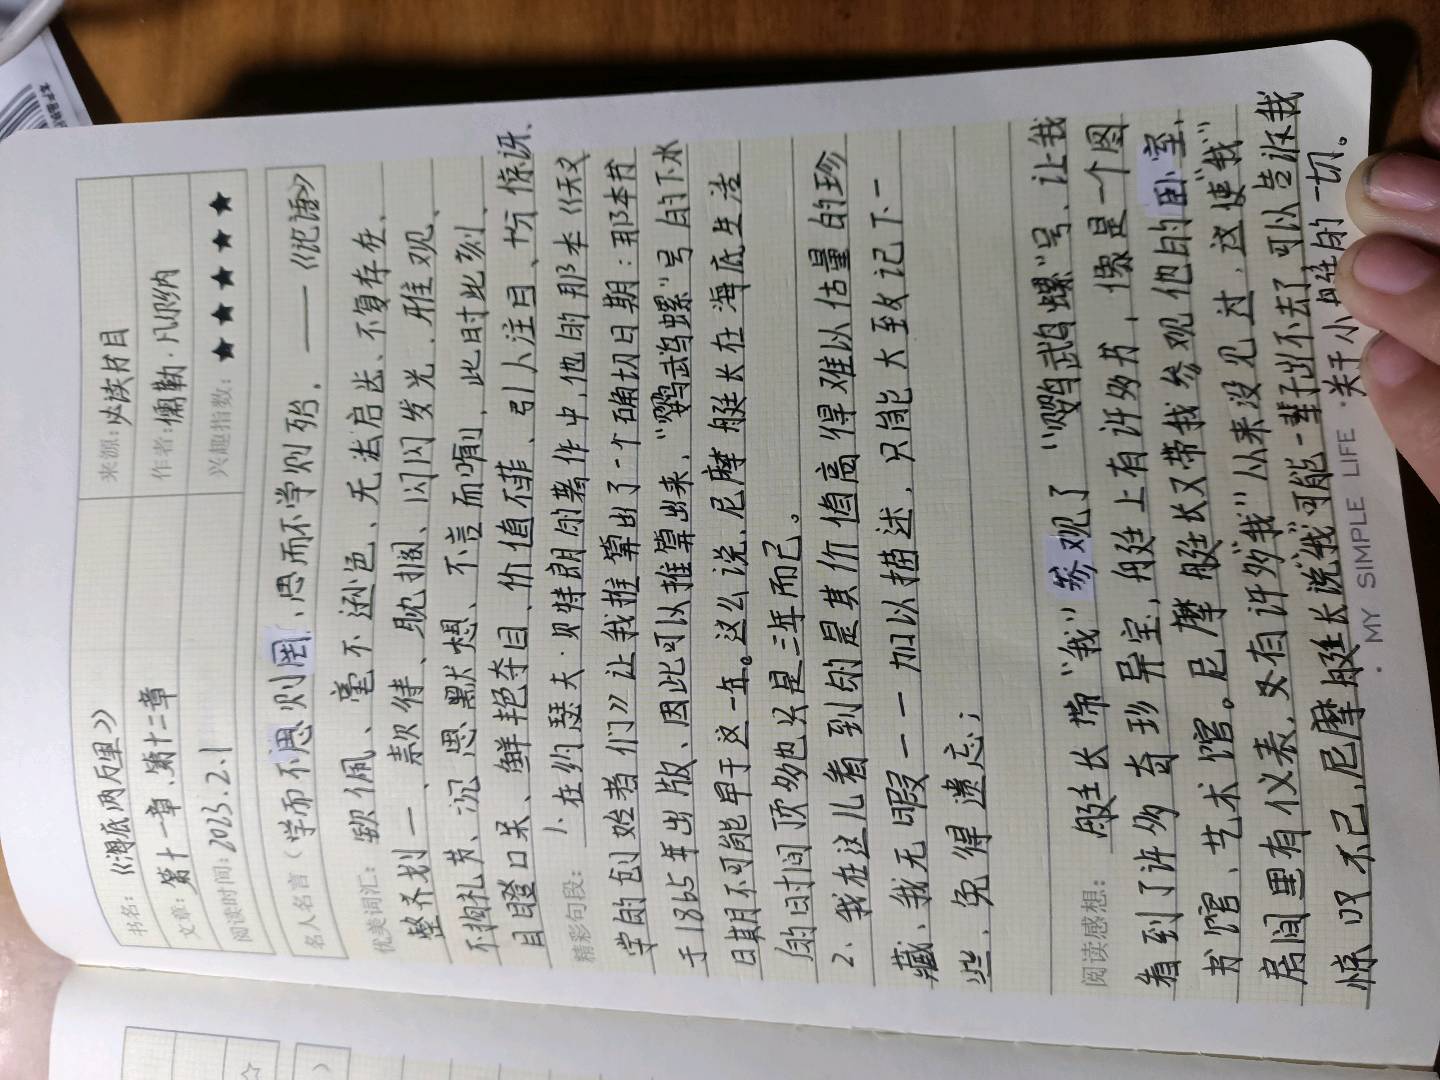 书名：《海底两万里》 来源：必读书目
文章：第十一章、第十二章 作者：儒勒·凡尔纳
阅读时间：2023.2.1 兴趣指数：★★★★★
名人名言（学而不思则罔、思而不学则殆，——《论语》
优美词汇：钦佩、毫不逊色、无法启齿、不复存在、
整齐划一、款待、耽搁、闪闪发光、雅观、
不拘礼节、沉思默想、不言而喻，此时此刻、
目瞪口呆、鲜艳夺目、价值不菲、引人注目、十分惊讶、
精彩句段：1、在约瑟夫·贝特朗的著作中，他的那本《天文
学的创始者们》让我推算出了一个确切日期：那本书
于1865年出版、因此可以推算出来，“鹦鹉螺”号的下水
日期不可能早于这一年。这么说，尼摩艇长在海底生活
的时间顶多也只是三年而已。
2、我在这儿看到的是其价值高得难以估量的珍
藏、我无暇一一加以描述，只能大至记下一
些，免得遗忘；
阅读感想：艇长带“我”参观了“鹦鹉螺”号、让我
看到了许多奇珍异宝，艇上有许多书，像是一个图
书馆、艺术馆。尼摩艇长又带我参观他的卧室、
房间里有仪表，又有许多“我”从来没见过，这使“我”
惊叹不已，尼摩艇长说“我”可能一辈子出不去了，可以告诉我
关于小艇的一切。
· MY SIMPLE LIFE ·